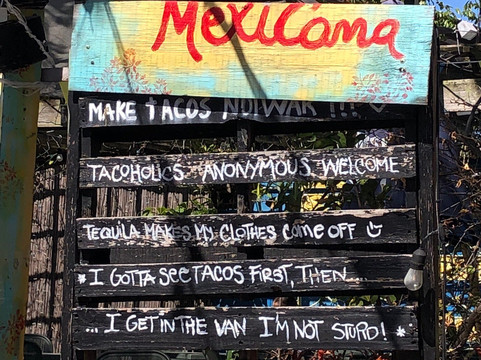 MexiCana
MAKE TACOS NOT WAR !!!
TACOHOLICS ANONYMOUS WELCOME
TEQUILA MAKES MY CLOTHES COME OFF
* I GOTTA SEE TACOS FIRST, THEN...
... I GET IN THE VAN I'M NOT STUPD! *